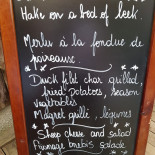 Hake on a bed of leek.
Merlu à la fondue de
poireaux.
Duck filet char grilled
fried potatoes, season
vegetables
Magret grillé, légumes
Sheep cheese and salad
Fromage brebis salade